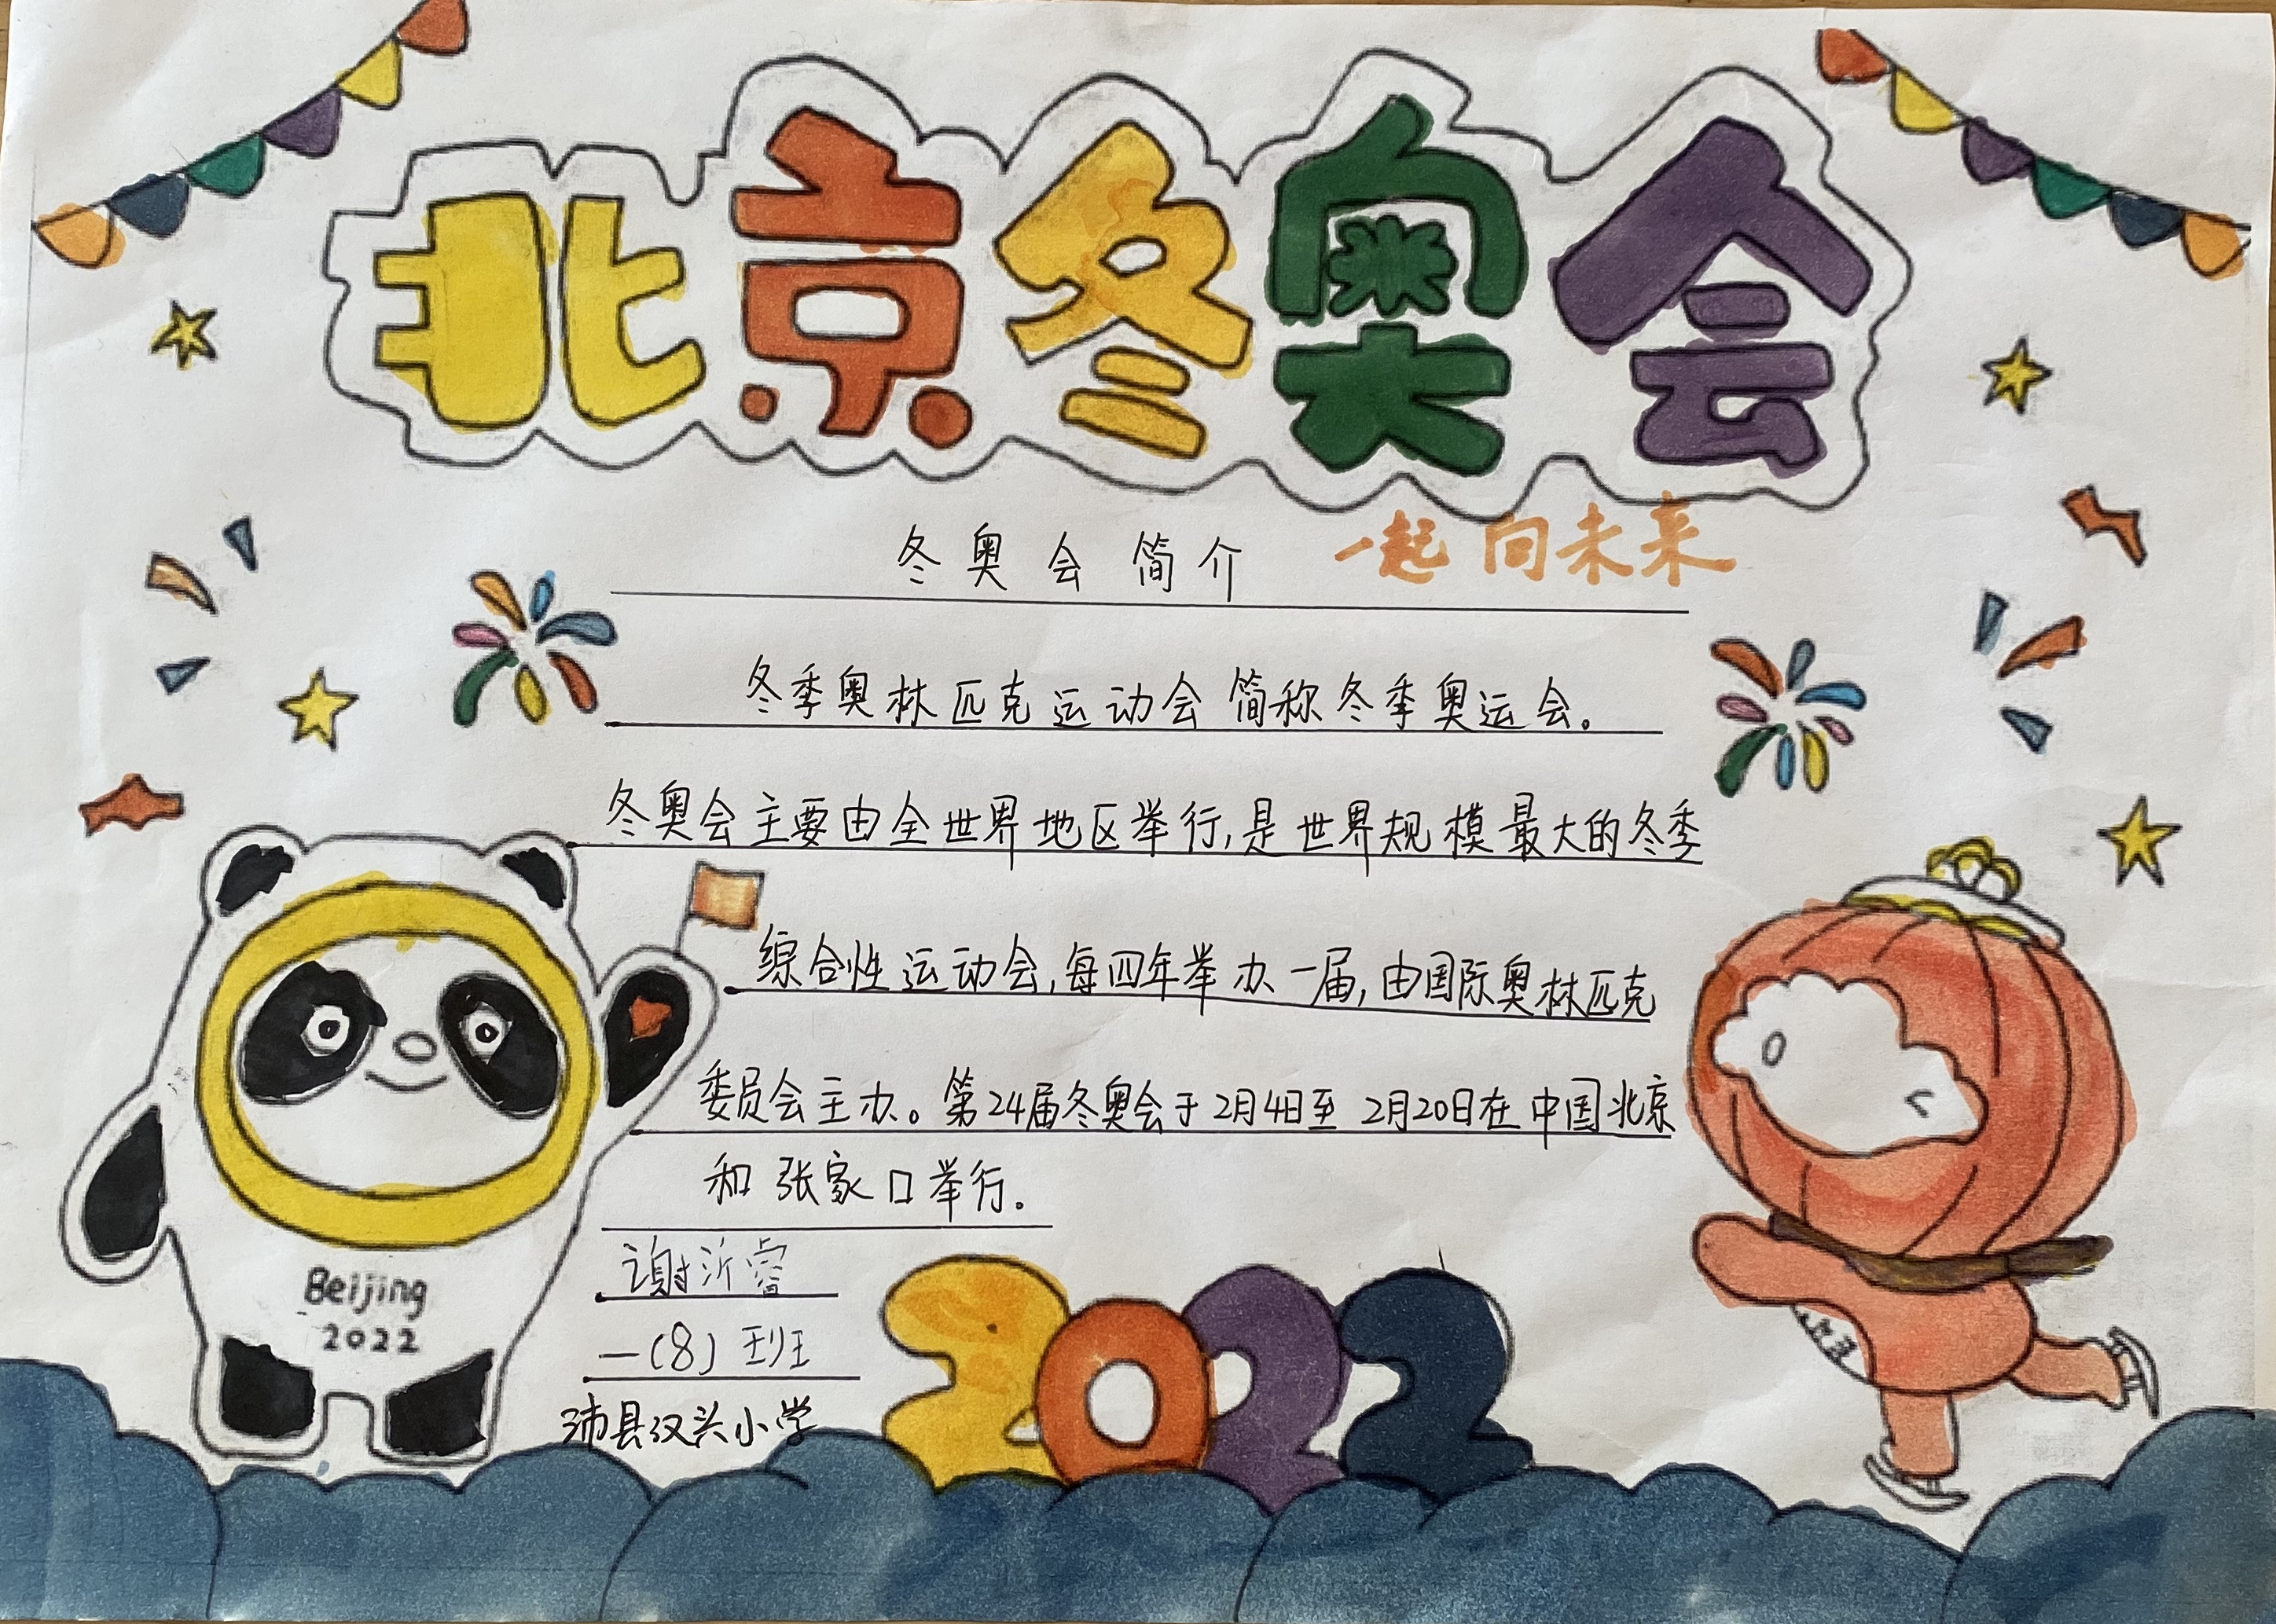 北京冬奥会
冬奥会简介 一起向未来
冬季奥林匹克运动会 简称冬季奥运会。
冬奥会主要由全世界地区举行,是世界规模最大的冬季
综合性运动会,每四年举办一届,由国际奥林匹克
委员会主办。第24届冬奥会于2月4日至2月20日在中国北京
和张家口举行。
谢沂睿
一(8)班
沛县汉兴小学
Beijing
2022
2022